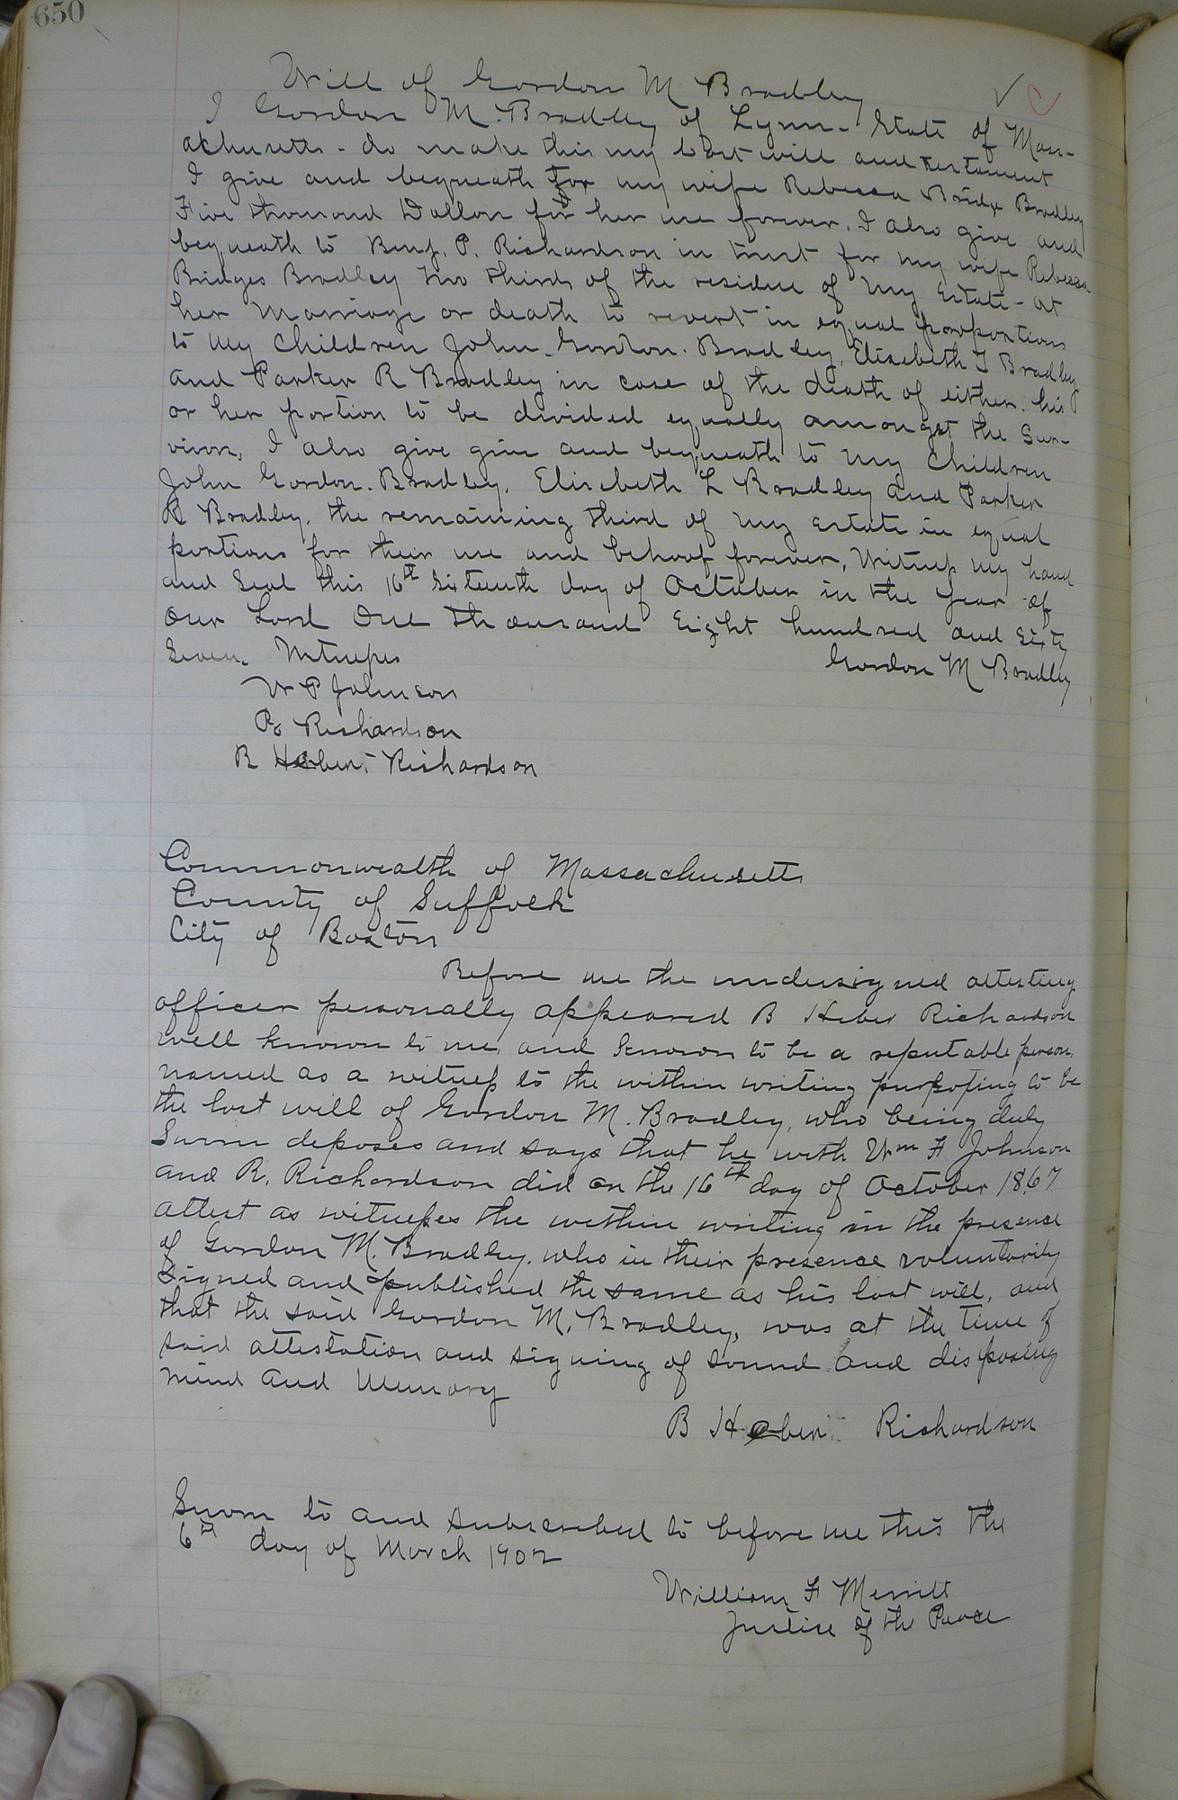 650
Will of Gordon M Bradley
I Gordon M. Bradley of Lynn - State of Mass-
achusetts - do make this my last will and testament
I give and bequeath for my wife Rebecca Bridge Bradley
Five thousand Dollars for her use forever. I also give and
bequeath to Benj. P. Richardson in trust for my wife Rebecca
Bridges Bradley two thirds of the residue of my Estate - at
her Marriage or death to revert in equal proportions
to my Children John - Gordon. Bradley, Elisebeth L Bradley
and Parker R Bradley in case of the death of either. his
or her portion to be divided equally amongst the Sur-
vivors, I also give give and bequeath to my Children
John Gordon. Bradley, Elisebeth L Bradley and Parker
R Bradley, the remaining third of my Estate in equal
portions for their use and behoof forever, Witness my hand
and Seal this 16th Sixteenth day of October in the year of
our Lord One thousand Eight hundred and Sixty
Seven. Witnesses Gordon M Bradley
W P Johnson
R Richardson
B Heber Richardson
Commonwealth of Massachusetts
County of Suffolk
City of Boston
Before me the undersigned attesting
officer personally appeared B Heber Richardson
well known to me, and known to be a reputable person,
named as a witness to the within writing purpoting to be
the last will of Gordon M. Bradley, who being duly
Sworn deposes and says that he with Wm F Johnson
and R. Richardson did on the 16th day of October 1867
attest as witnesses the within writing in the presence
of Gordon M. Bradley. who in their presence voluntarily
signed and published the same as his last will, and
that the said Gordon M. Bradley, was at the time of
said attestation and signing of sound and disposing
mind and memory
B Heber Richardson
Sworn to and subscribed to before me this the
6th day of March 1902
William F Merritt
Justice of the Peace